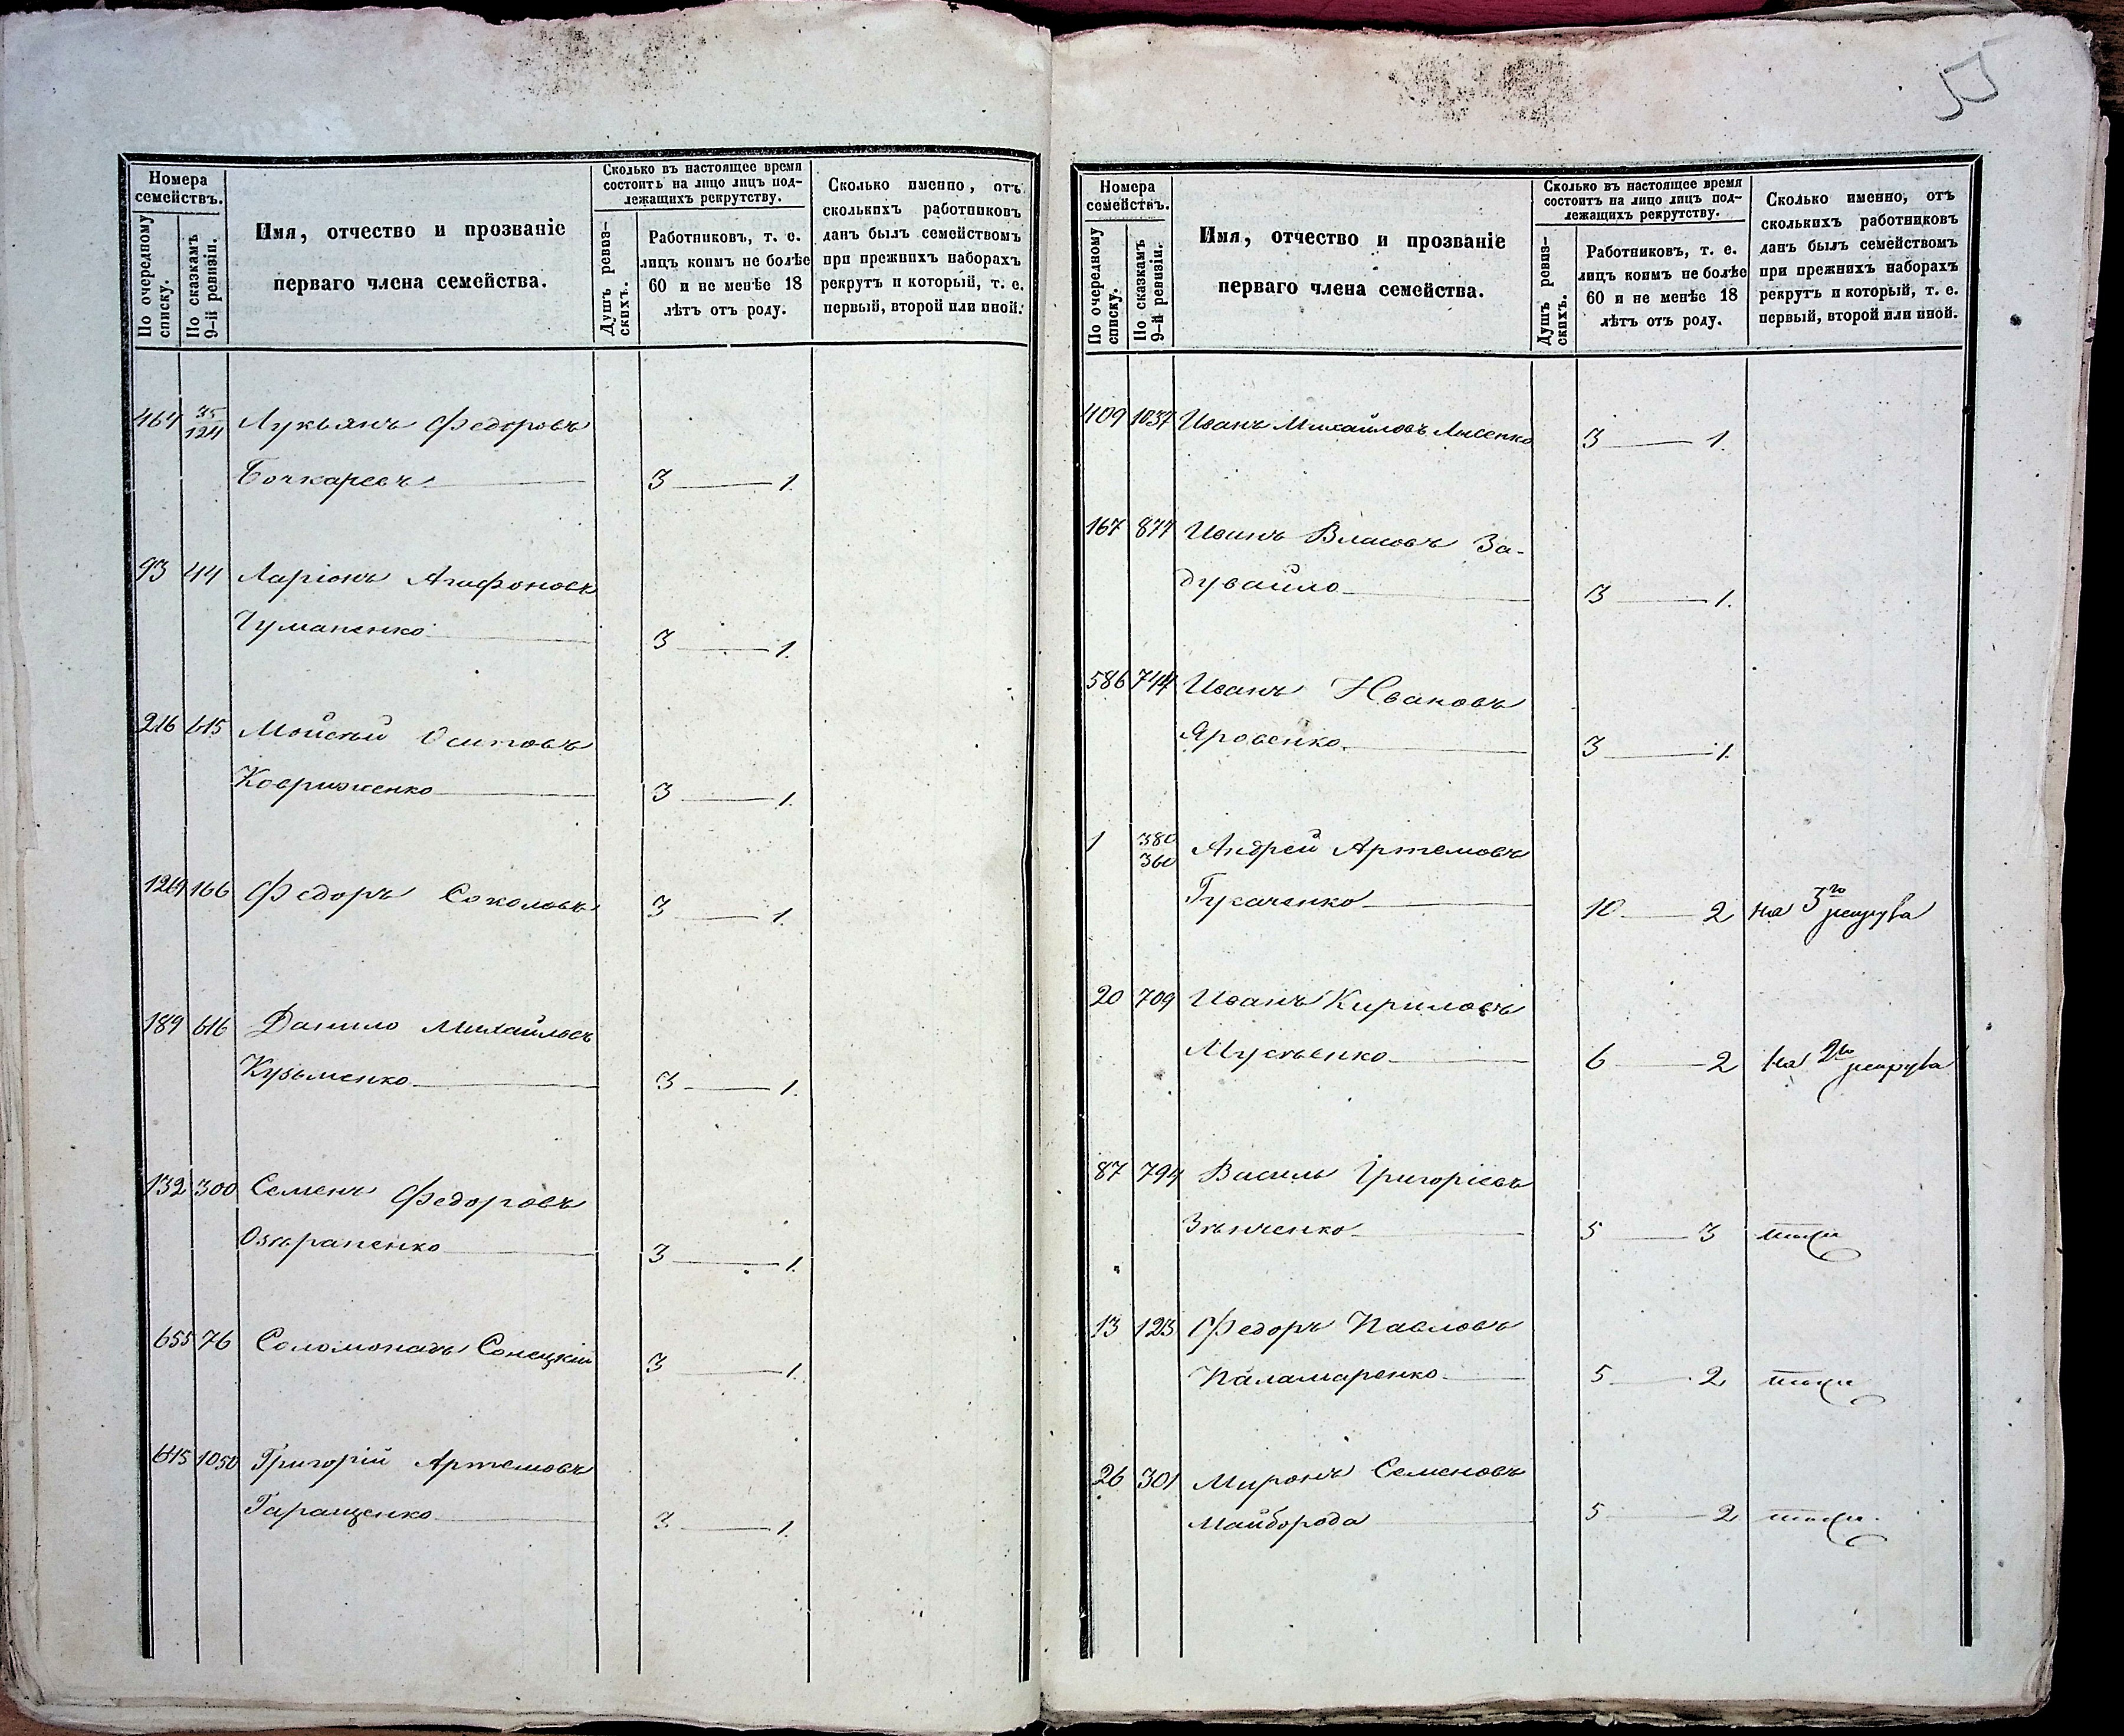 Номера
семействъ.
По очередному
списку.
По сказкамъ
9-й ревизіи.
Имя, отчество и прозваніе
перваго члена семейства.
Сколько въ настоящее время
состоитъ на лицо лицъ под-
лежащихъ рекрутству.
Душъ ревиз-
скихъ.
Работниковъ, т. е.
лицъ коимъ не болѣе
60 и не менѣе 18
лѣтъ отъ роду.
Сколько именно, отъ
сколькихъ работниковъ
данъ былъ семействомъ
при прежнихъ наборахъ
рекрутъ и который, т. е.
первый, второй или иной.
464 75/124 Лукьянъ Федоровъ
Бочкаревъ 3 — 1.
93 44 Ларіонъ Агафоновъ
Чумаченко 3 — 1.
216 615 Мойсѣй Осиповъ
Ковриженко 3 — 1.
1269 166 Федоръ Соколовъ 3 — 1.
189 616 Данило Михайловъ
Кузьменко 3 — 1.
132 300 Семенъ Федоровъ
3 — 1.
655 76 Сонецкій 3 — 1.
615 1050 Григорій Артемовъ
Гаращенко 3 — 1.
Номера
семействъ.
По очередному
списку.
По сказкамъ
9-й ревизіи.
Имя, отчество и прозваніе
перваго члена семейства.
Сколько въ настоящее время
состоитъ на лицо лицъ под-
лежащихъ рекрутству.
Душъ ревиз-
скихъ.
Работниковъ, т. е.
лицъ коимъ не болѣе
60 и не менѣе 18
лѣтъ отъ роду.
Сколько именно, отъ
сколькихъ работниковъ
данъ былъ семействомъ
при прежнихъ наборахъ
рекрутъ и который, т. е.
первый, второй или иной.
409 1037 Иванъ Михайловъ Лысенко 3 — 1.
167 877 Иванъ Власовъ За-
дувайло 3 — 1.
586 744 Иванъ Ивановъ
Яровенко 3 — 1.
1 380/360 Андрей Артемовъ
10 — 2 на 3го рекрута
20 709 Иванъ Кириловъ
6 — 2 на 2го рекрута
87 794 Василь Григоріевъ
Зѣнченко 5 — 3 тоже
13 123 Федоръ Павловъ
Паламаренко 5 — 2 тоже
26 301 Миронъ Семеновъ
Майборода 5 — 2 тоже.